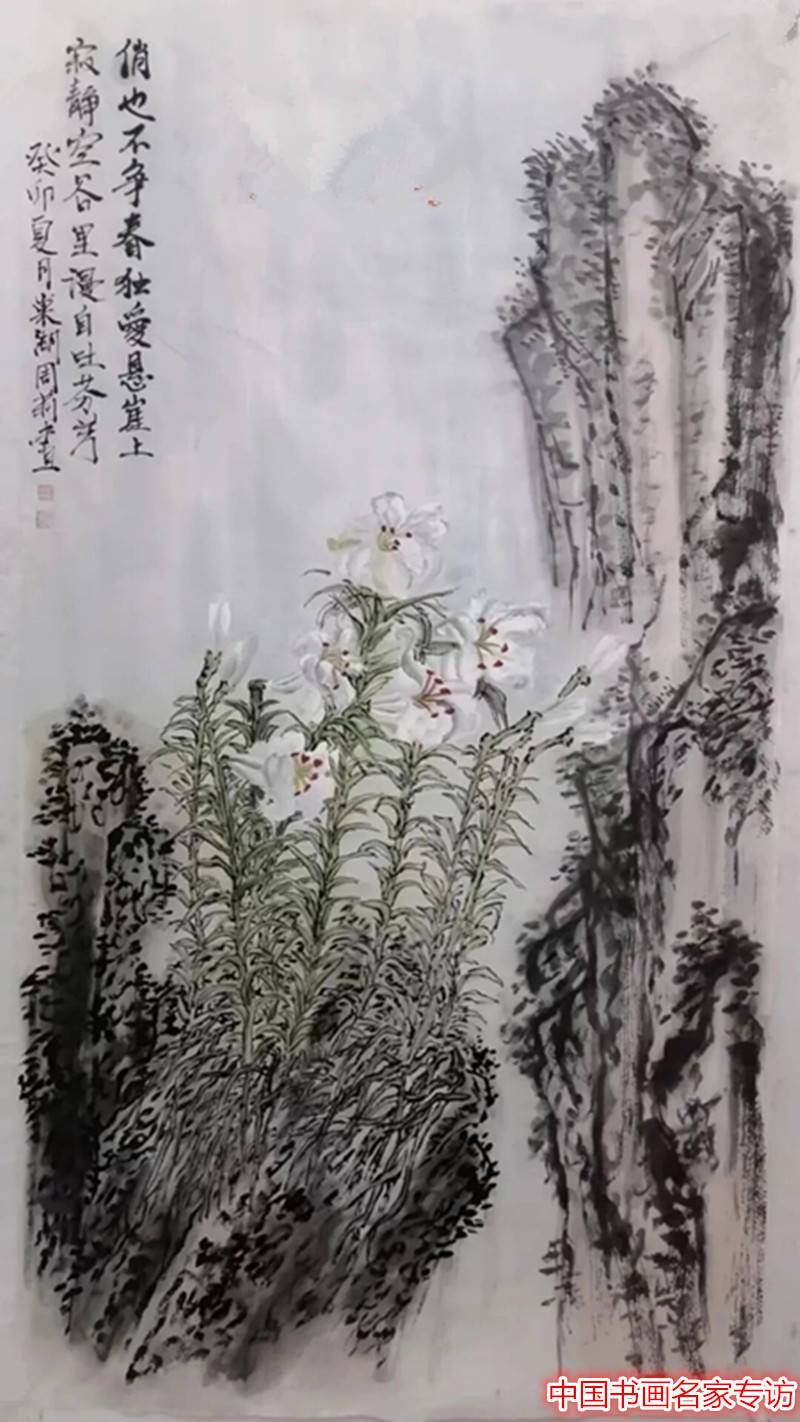 俏也不争春独爱悬崖上
寂静空谷里漫自吐芬芳
癸卯夏月巢湖周莉画
中国书画名家专访